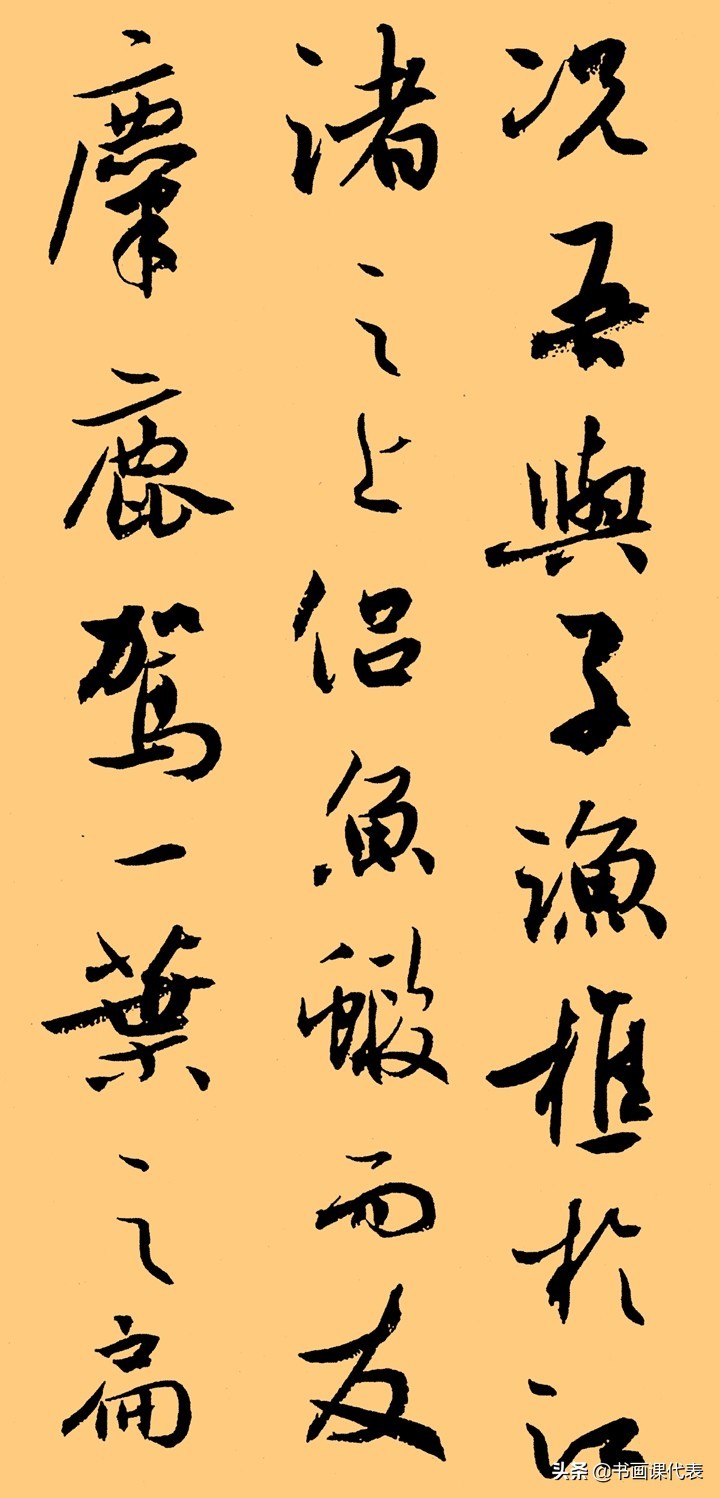 况吾與子漁樵於江
渚之上侣魚蝦而友
麋鹿駕一葉之扁
头条 @书画课代表